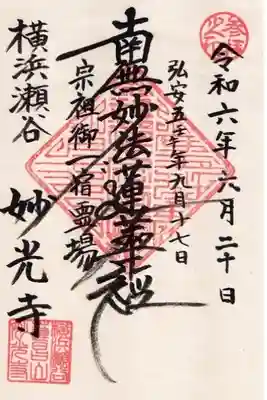 令和六年六月二十日
弘安五壬午年九月十七日
南無妙法蓮華経
宗祖御一宿霊場
横浜瀬谷
妙光寺